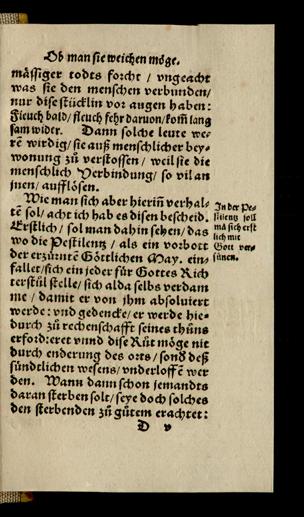 Ob man sie weichen möge.
mässiger todts forcht / vngeacht
was sie den menschen verbunden/
nur dise stücklin vor augen haben:
Fleuch bald / fleuch fehr daruon/ kom̃ lang
sam wider. Dann solche leute we-
ren wirdig / sie auß menschlicher bey-
wonung zů verstossen / weil sie die
menschlich Verbindung / so vil an
jnen / aufflösen.
Wie man sich aber hieriñ verhal-
ten sol / acht ich hab es disen bescheid.
Erstlich / sol man dahin sehen / das
wo die Pestilentz / als ein vorbott
der erzürnten Göttlichen May. ein-
fallet / sich ein jeder für Gottes Rich
terstůl stelle / sich alda selbs verdam
me / damit er von jhm absoluiert
werde: vnd gedencke / er werde hie-
durch zů rechenschafft seines thůns
erforderet vnnd dise Růt möge nit
durch enderung des orts / sonđ deß
sündtlichen wesens / vnderloffen wer
den. Wann dann schon jemandts
daran sterben solt / seye doch solches
den sterbenden zů gůtem erachtet:
D v
In der Pe-
stilentz soll
mā sich erst
lich mit
Gott ver-
sünen.